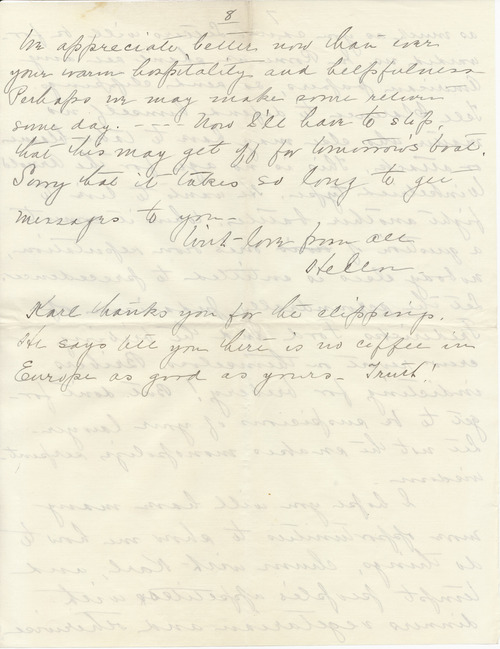 8
We appreciate better now than ever
your warm hospitality and helpfulness
Perhaps we may make some return
some day. ---- Now I'll have to stop,
that this may get off for tomorrow's boat.
Sorry that it takes so long to get
messages to you—
With love from all
Hellen
Karl thanks you for the clippings.
He says tell you there is no coffee in
Europe as good as yours— Truth!